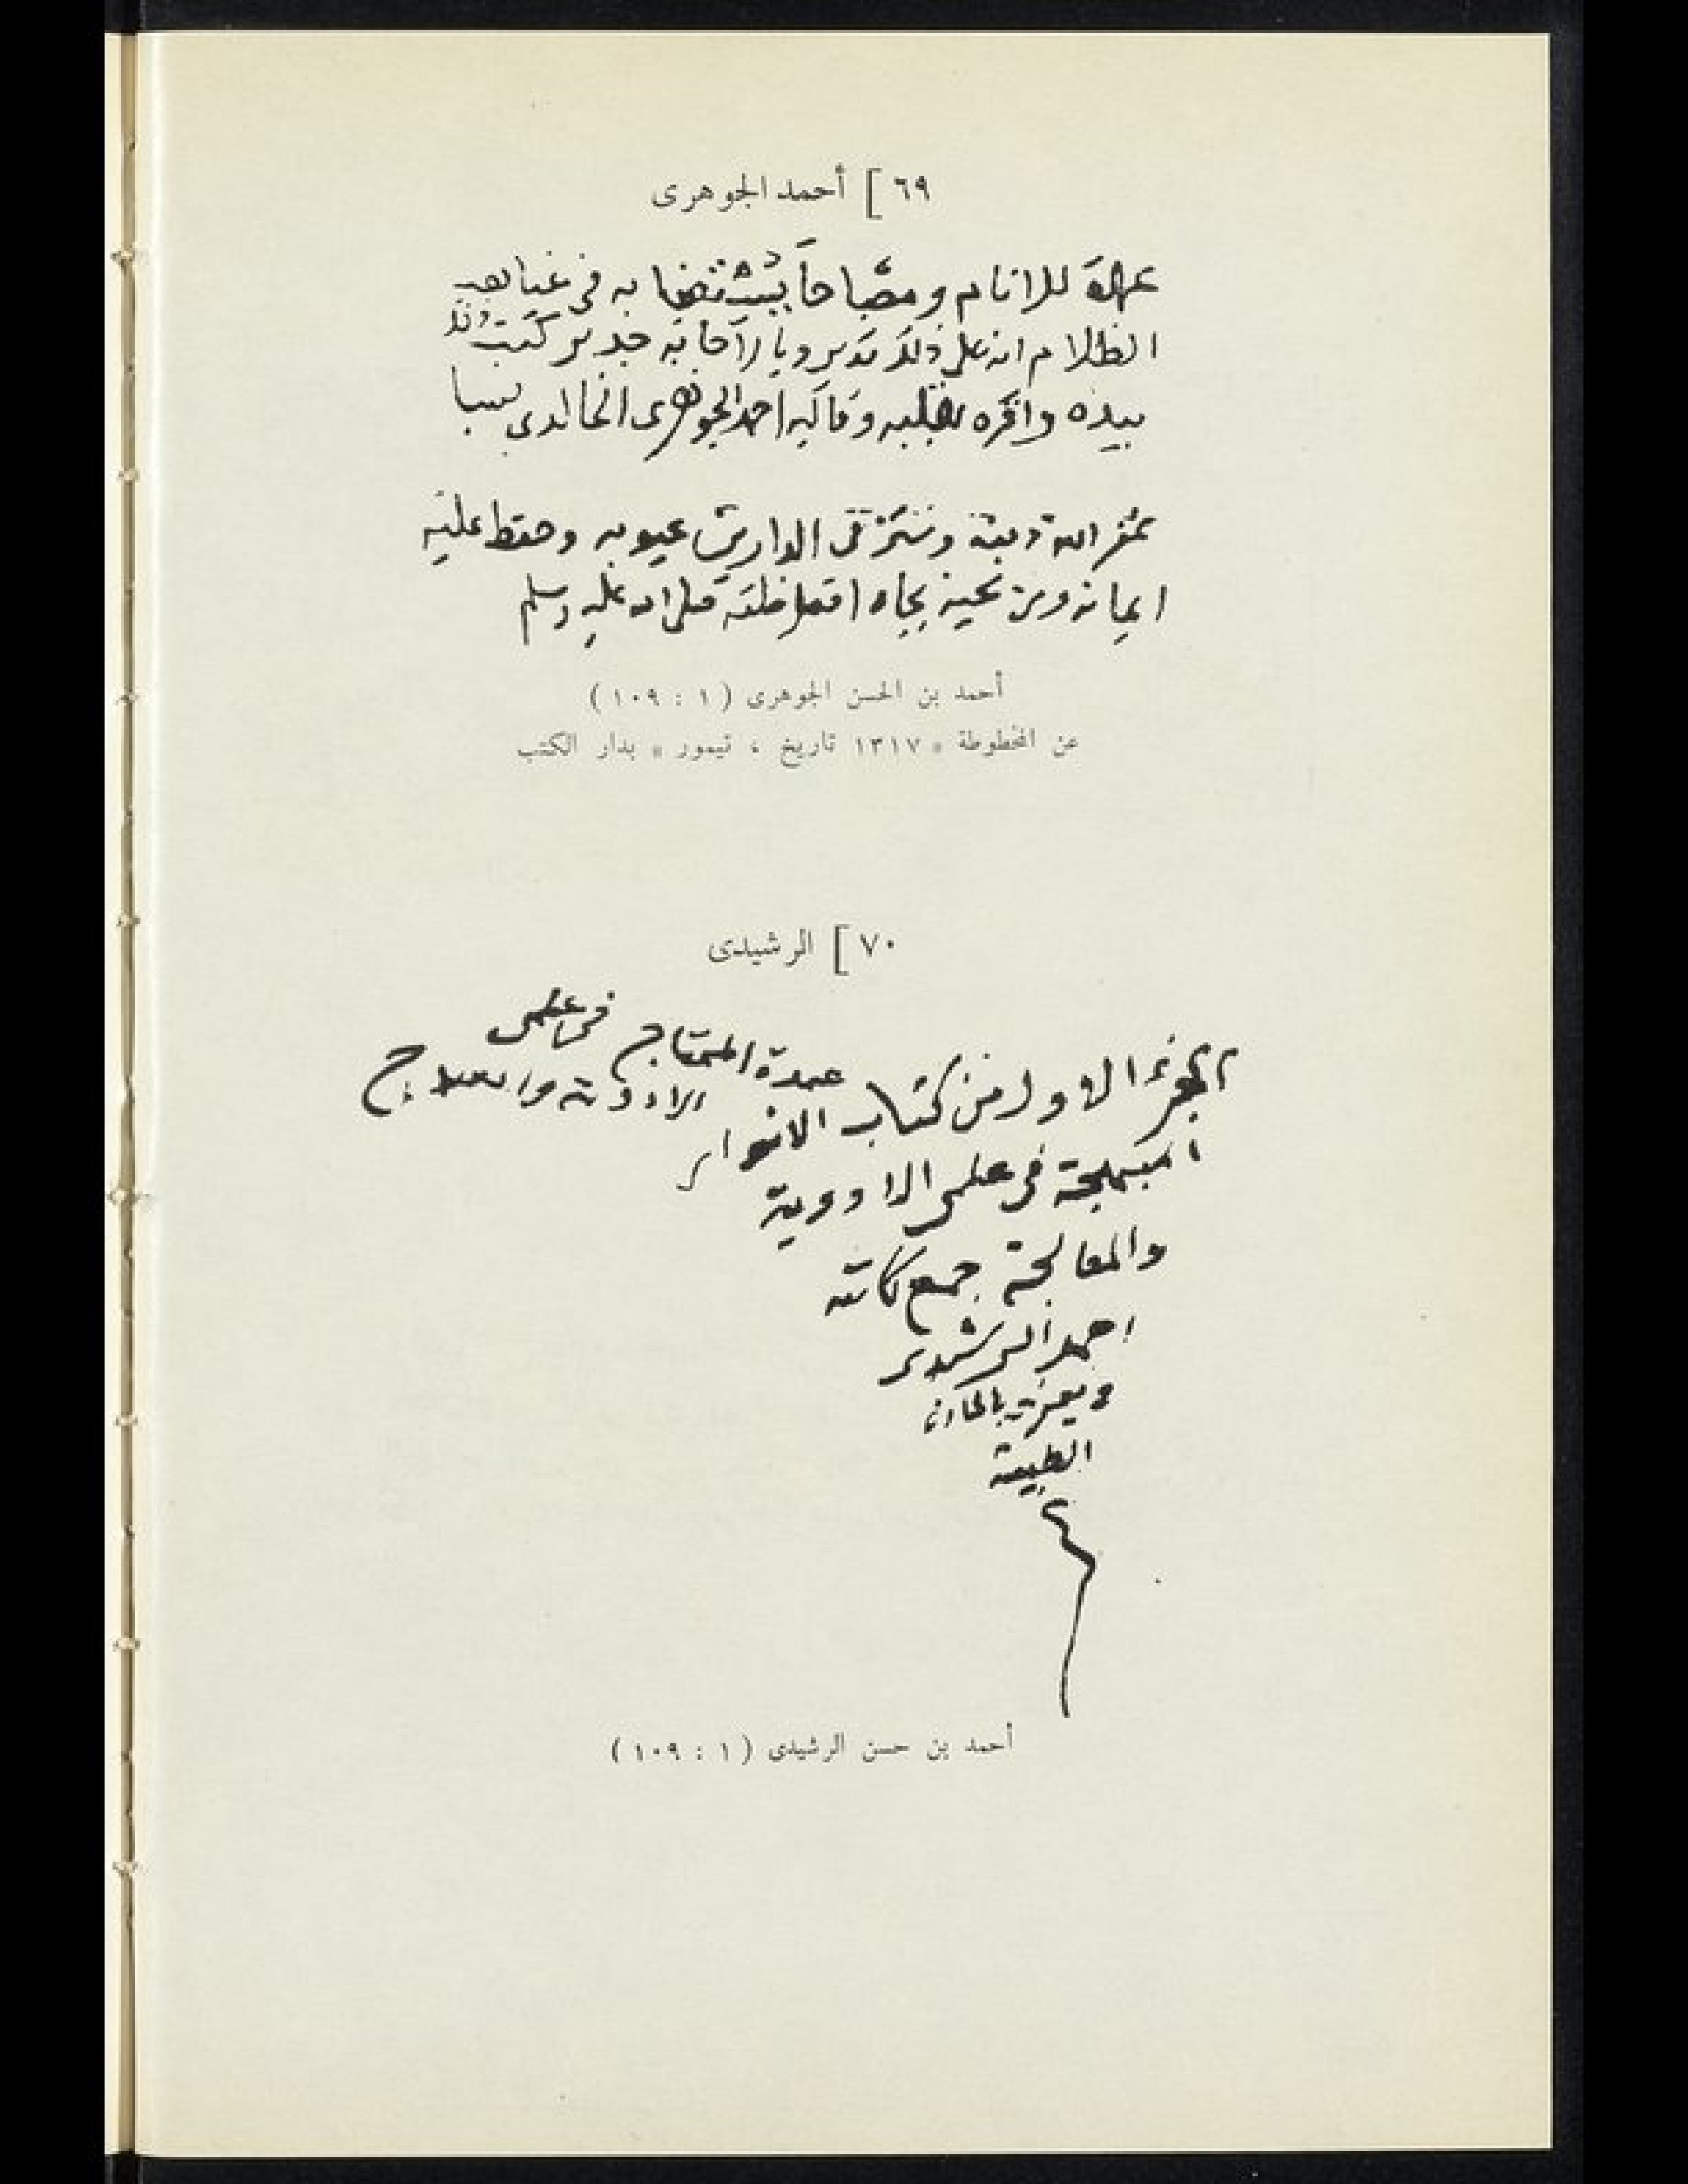 ٦٩ ] أحمد الجوهرى
للانام ومصباحاً يستضا به فى غياهب
الظلام انه على ذلك قدير وبالاجابة جدير كتب ذلك
بيده وفاكيه احمد الجوهرى الخالدى نسبا
غفر الله ذنبه وستر فى الدارين عيوبه وحفظ عليه
ايمانه بجاه افضل خلقه صلى الله عليه وسلم
أحمد بن الحسن الجوهرى ( ١ : ١٠٩ )
عن المخطوطة « ١٣١٧ تاريخ ، تيمور » بدار الكتب
٧٠ ] الرشيدى
الجزء الاول من كتاب عمدة المحتاج فى علمى
الادوية والعلاج
الانوار
فى علمى الادوية
والمعالجة جمع كاتبه
احمد الرشيدى
الطبية
أحمد بن حسن الرشيدى ( ١ : ١٠٩ )